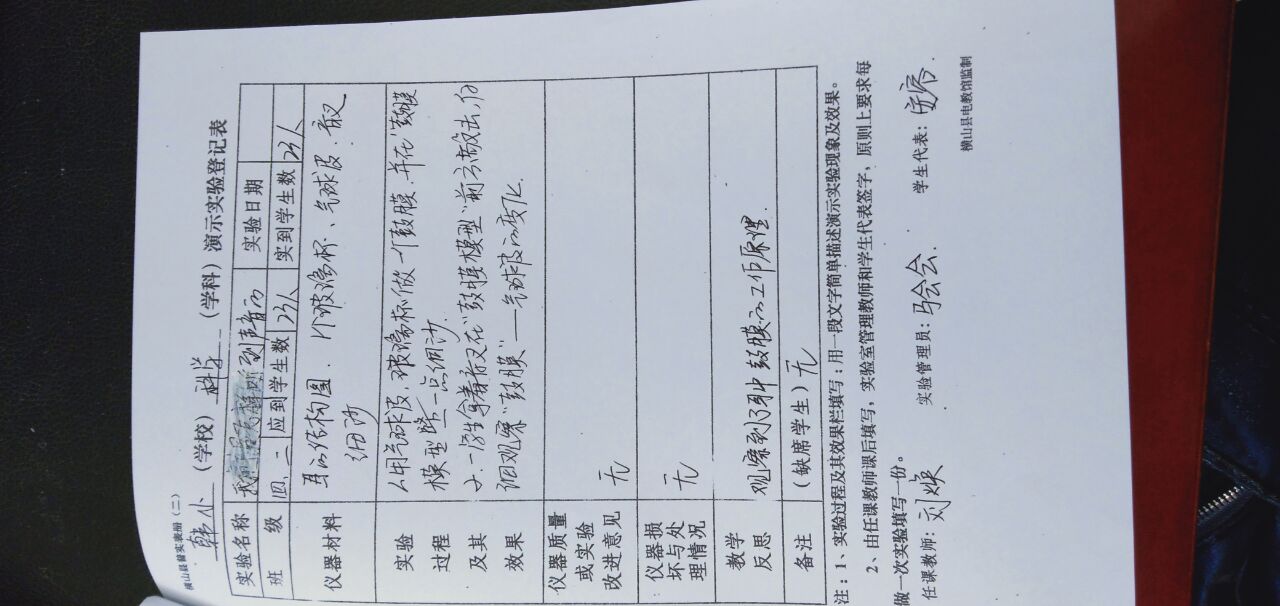 横山县督实表册(二)
韩小(学校)科学(学科)演示实验登记表
实验名称 我们是怎样听到声音的 实验日期
班 级 四、二 应到学生数 23人 实到学生数 23人
仪器材料 耳的结构图、1个玻璃杯、气球皮、音叉
细沙
实验
过程
及其
效果
1、用气球皮、玻璃杯做一个鼓膜,并在"鼓膜
模型"上撒一点细沙
2、一学生拿着音叉在"鼓膜模型"前方敲击,仔
细观察"鼓膜"——气球皮的变化。
仪器质量
或实验
改进意见
无
仪器损
坏与处
理情况
无
教学
反思
观察到了耳中鼓膜的工作原理.
备注 (缺席学生)无
注:1、实验过程及其效果栏填写:用一段文字简单描述演示实验现象及效果。
2、由任课教师课后填写,实验室管理教师和学生代表签字,原则上要求每
做一次实验填写一份。
任课教师:刘焕 实验管理员:马会会. 学生代表:
横山县电教馆监制